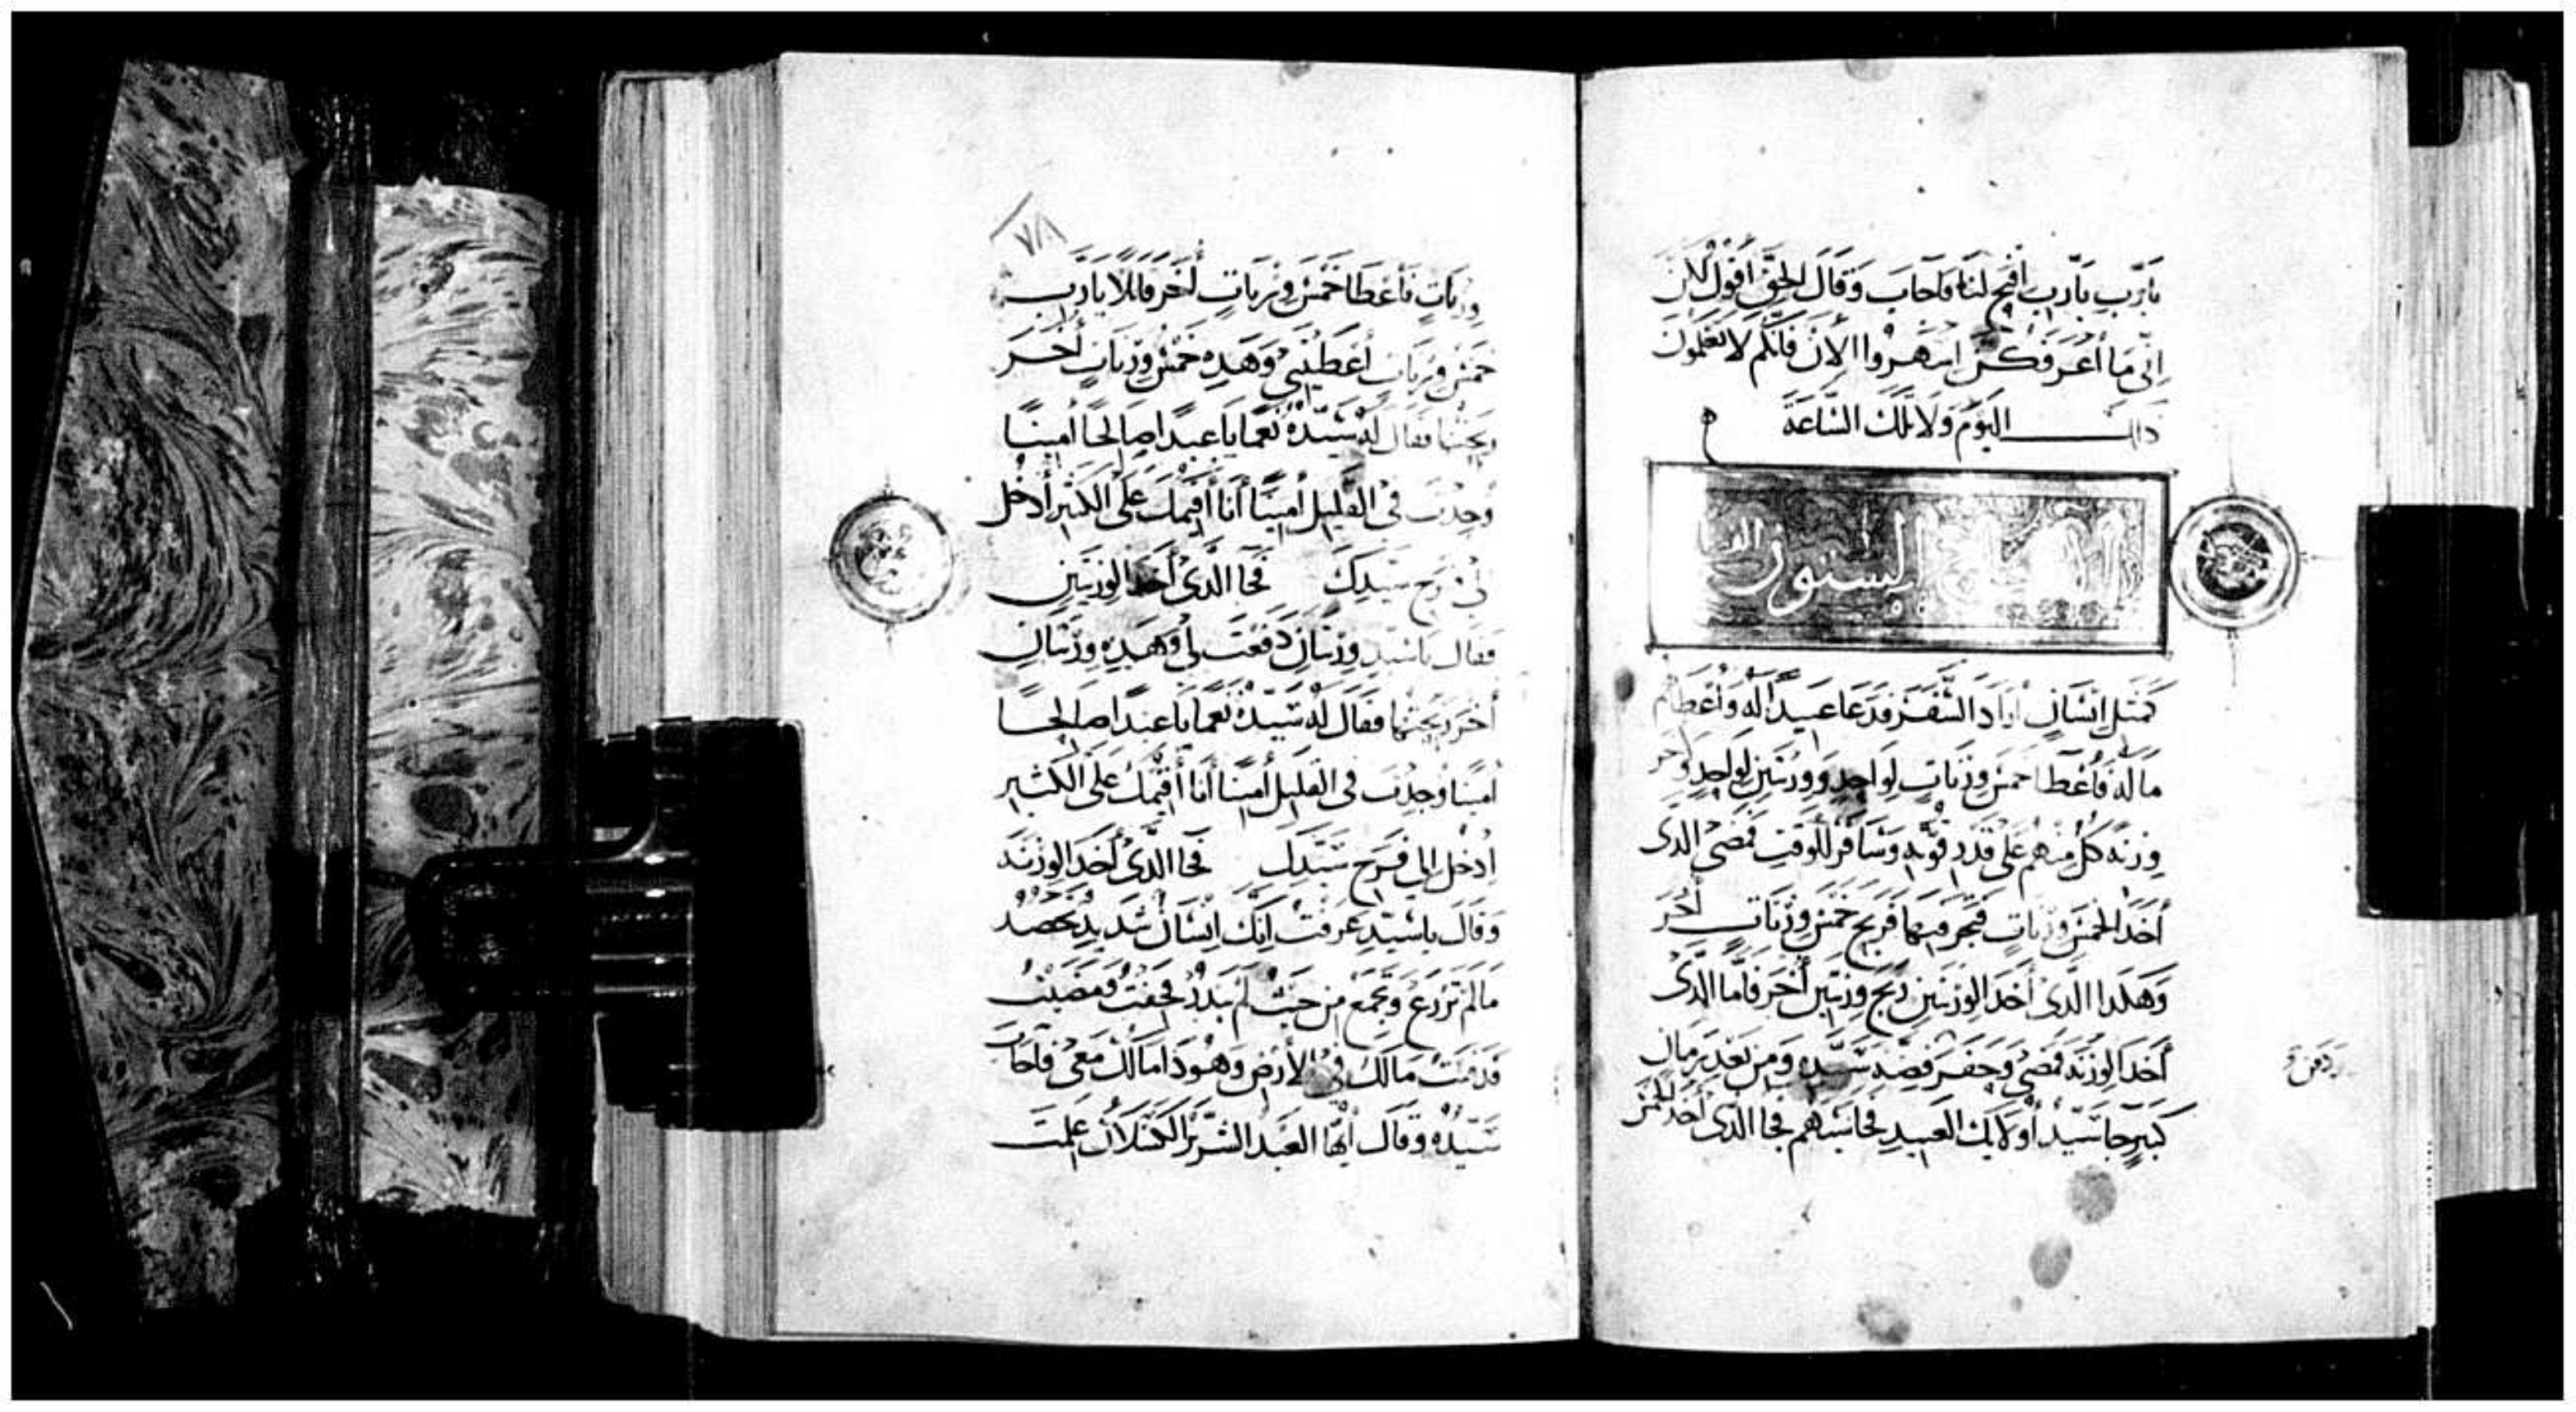 يَارَب يَارَب افتح لنَا فَاجاب وَقَالَ الحق اقول لكن
اِنّى مَا أعرفكن اسهروا الان فانكم لا تعلمون
ذلك اليَوم وَلا تلك السَّاعَة
الاصحاح الستون
كمثل انسَان أراد السّفر فدعا عَبيداً لَه وَأعطاهم
مَاله فأعطا خمس وزنات لواحد ووزنتين لواحد وَاخر
وزنه كل منهم على قدر قوته وسَافر للوقت فمضى الدى
أخذ الخمس وزنات فتجر فيها فربح خمس وزنات أخر
وهكدا الدى أخذ الوزنتين ربح وزنتين أخر فأما الدى
أخذ الوزنه فمضى وحفر فضة سَيّده ومن بعد زمان
كبير جا سَيّد أولايك العبيد فحاسبهم فجا الدى أخذ الخمس
٧٨
وزنات فأعطا خمس وزنات أخر قايلا يا رب
خمس وزنات أعطيتني وهده خمس وزنات أخر
ربحتها فقال له سَيّده نعما يا عبدا صالحا أمينا
وجدت فى القليل أمينا أنا أقيمك على الكثير أدخل
إلى فرح سيدك فجا الدى أخذ الوزنتين
فقال يا سيد وزنتان دفعت لى وهده وزنتان
أخر ربحتها فقال له سَيّده نعما يا عبدا صالحا
أمينا وجدت فى القليل أمينا أنا أقيمك على الكثير
أدخل إلى فرح سَيّدك فجا الدى أخذ الوزنه
وقال يا سَيّد عرفت انك انسان شديد تحصد
ما لم تزرع وتجمع من حيث لم تبدر فخفت ومضيت
فدفنت مَالك فى الأرض وهودا مالك معى فأجاب
سَيّده وقال أيها العبد الشرير الكسلان علمت